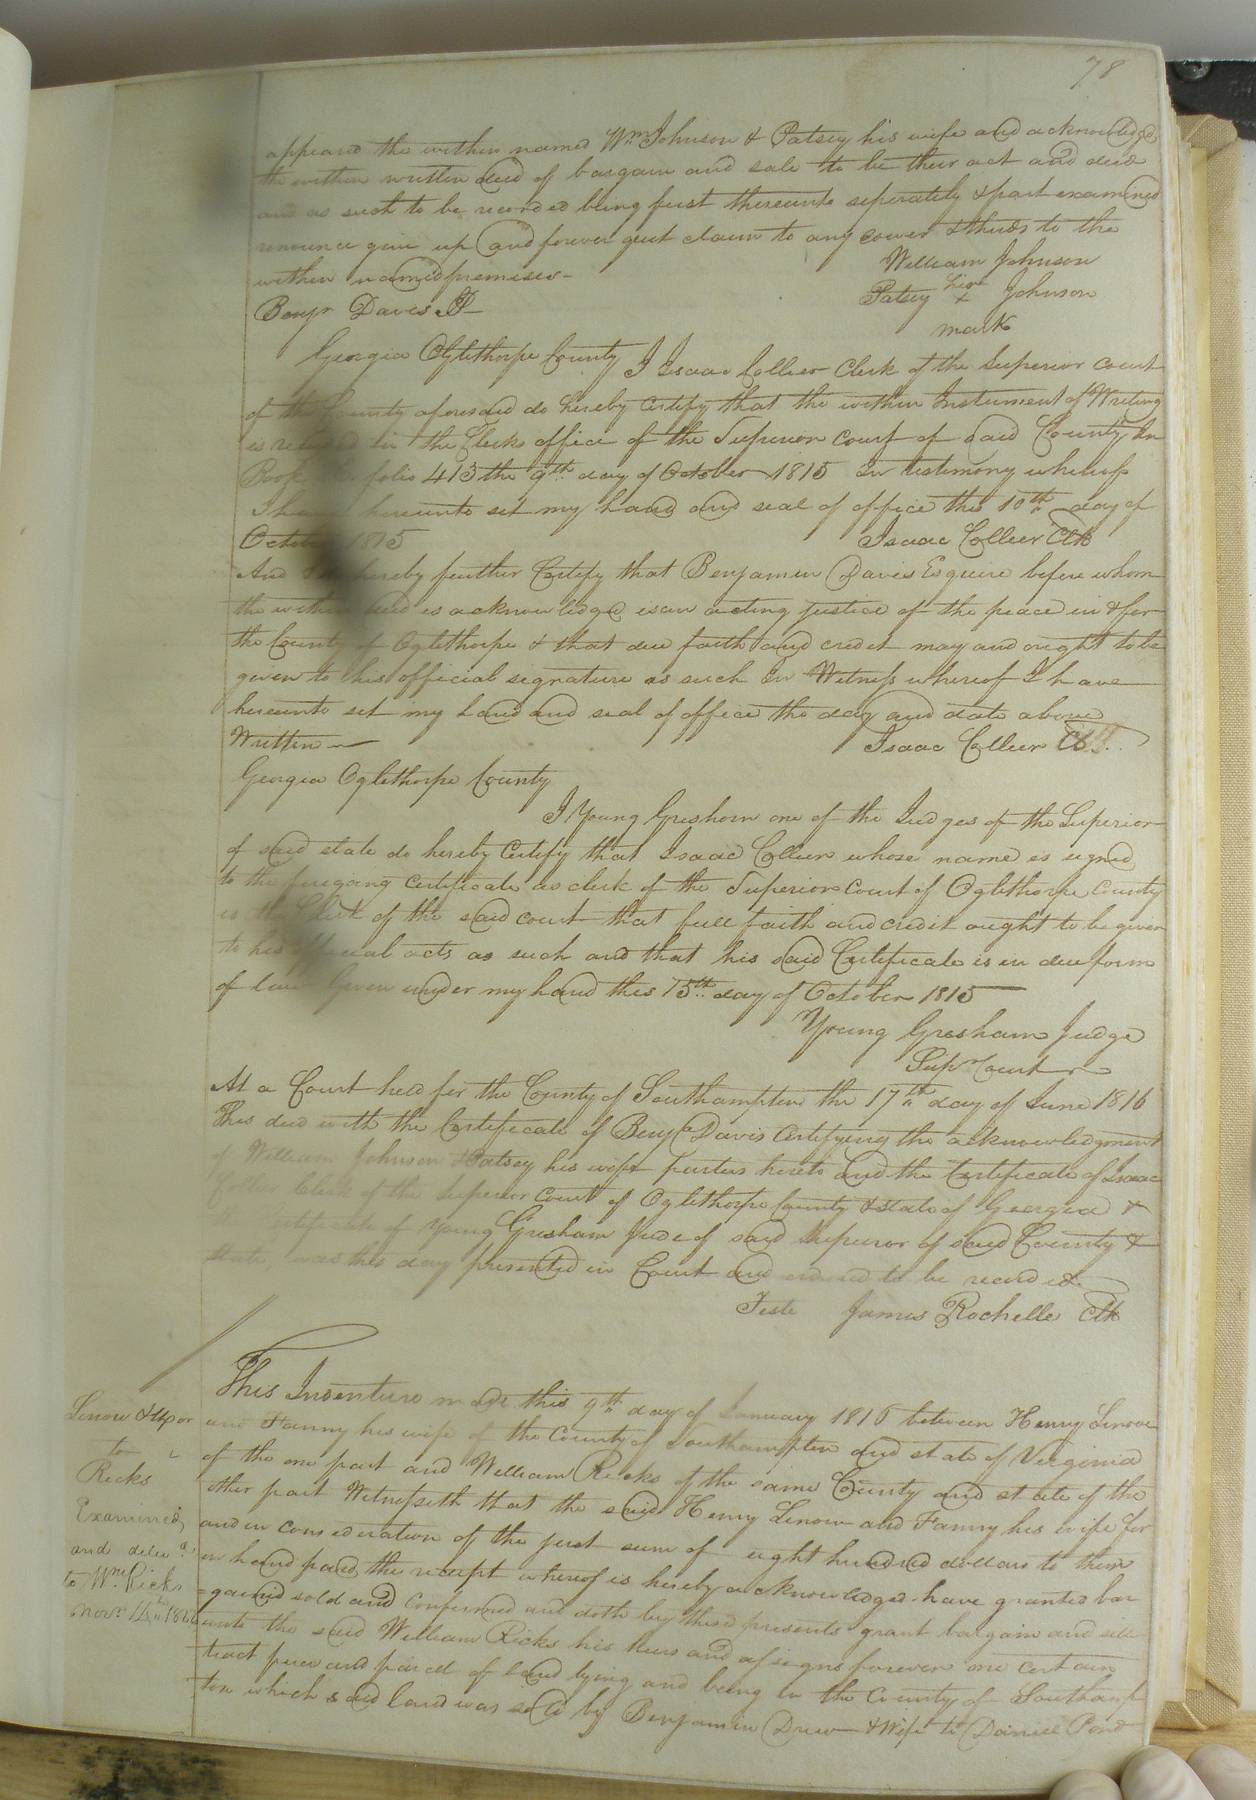 78
appeared the within named Wm Johnson & Patsey his wife and acknowledged
the within written deed of bargain and sale to be their act and deed
and as such to be recorded being first thereunto seperately & part examined
renounce give up and forever quit claim to any dower & thirds to the
within named premises- William Johnson
Patsey her x mark Johnson
Benjn Davis JP
Georgia Oglethorpe County I Isaac Collier Clerk of the Superior court
of the County aforesaid do hereby Certify that the within Instrument of Writing
is in the Clerks office of the Superior court of said County In
Book folio 413 the 9th day of October 1815 In testimony whereof
I hereunto set my hand and seal of office this 10th day of
October 1815 Isaac Collier Clk
And I hereby further Certify that Benjamin Davis Esquire before whom
the within deed is acknowledged is an acting justice of the peace in & for
the County of Oglethorpe & that due faith and credit may and ought to be
given to his official signature as such In Witness whereof I have
hereunto set my hand and seal of office the day and date above
Written Isaac Collier Clk
Georgia Oglethorpe County
I Young Greshom one of the Judges of the Superior
of said state do hereby Certify that Isaac Collier whose name is signed
to the foregoing Certificate as clerk of the Superior Court of Oglethorpe County
is the Clerk of the said court that full faith and credit ought to be given
to his official acts as such and that his said Certificate is in due form
of law Given under my hand this 15th day of October 1815
Young Gresham Judge
Supr Court
At a Court held for the County of Southampton the 17th day of June 1816
This deed with the Certificate of Benjn Davis Certifying the acknowledgment
of William Johnson & Patsey his wife parties hereto and the Certificate of Isaac
Collier Clerk of the Superior Court of Oglethorpe County & state of Georgia &
Certificate of Young Gresham Jude of said Superior of said County &
state was this day presented in Court and ordered to be recorded
Teste James Rochelle Clk
Lenow & Uxor
to
Ricks
Examined,
and delivd
to Wm. Ricks
Novr
This Indenture made this 9th day of January 1816 between Henry Lenow
and Fanny his wife of the County of Southampton and state of Virginia
of the one part and William Ricks of the same County and state of the
other part Witnesseth that the said Henry Lenow and Fanny his wife for
and in consideration of the just sum of eight hundred dollars to them
in hand paid, the receipt whereof is hereby acknowledged have granted bar
=gained sold and Confirmed and doth by these presents grant bargain and sell
unto the said William Ricks his heirs and assigns forever one certain
tract piece and parcel of land lying and being in the County of Southamp
ton which said land was sold by Benjamin Drew & Wife to Daniel Pond